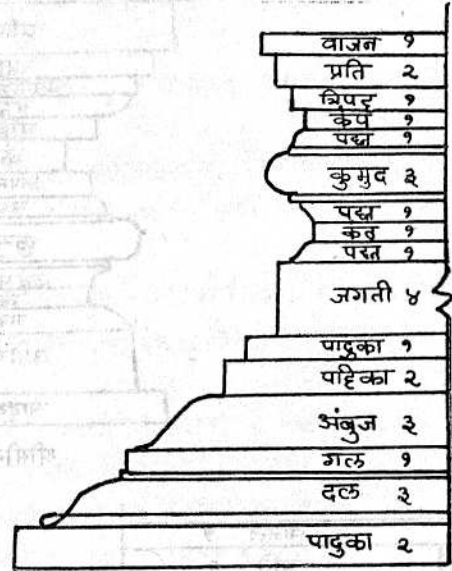 वाजन १
प्रति २
त्रिपट्ट १
कंप १
पद्म १
कुमुद ३
पद्म १
कंठ १
पद्म १
जगती ४
पादुका १
पट्टिका २
अंबुज ३
गल १
दल ३
पादुका २